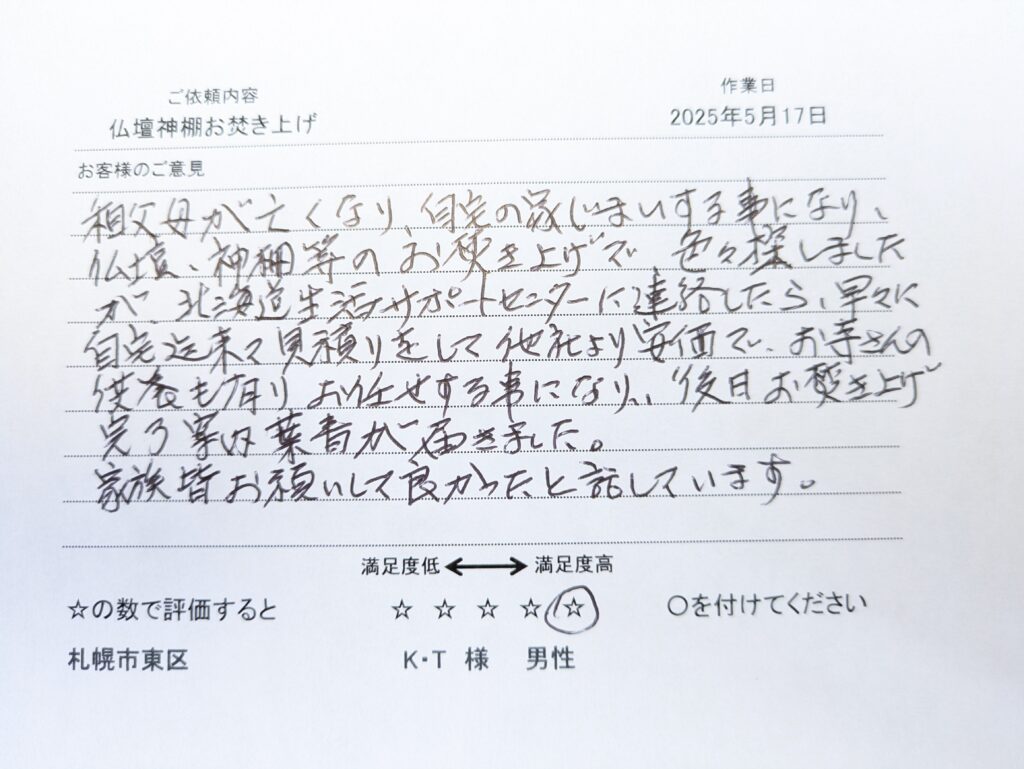 ご依頼内容
作業日
仏壇神棚お焚き上げ
2025年5月17日
お客様のご意見
祖父母が亡くなり、自宅の家じまいする事になり、
仏壇、神棚等のお焚き上げで 色々探しました
が、北海道生活サポートセンターに連絡したら、早々に
自宅迄来て見積りをして他社より安価で、お寺さんの
供養も有りお任せする事になり、後日お焚き上げ
完了案内葉書が届きました。
家族皆お願いして良かったと話しています。
満足度低 ←→ 満足度高
☆の数で評価すると ☆ ☆ ☆ ☆ ☆ ○を付けてください
札幌市東区 K・T 様 男性